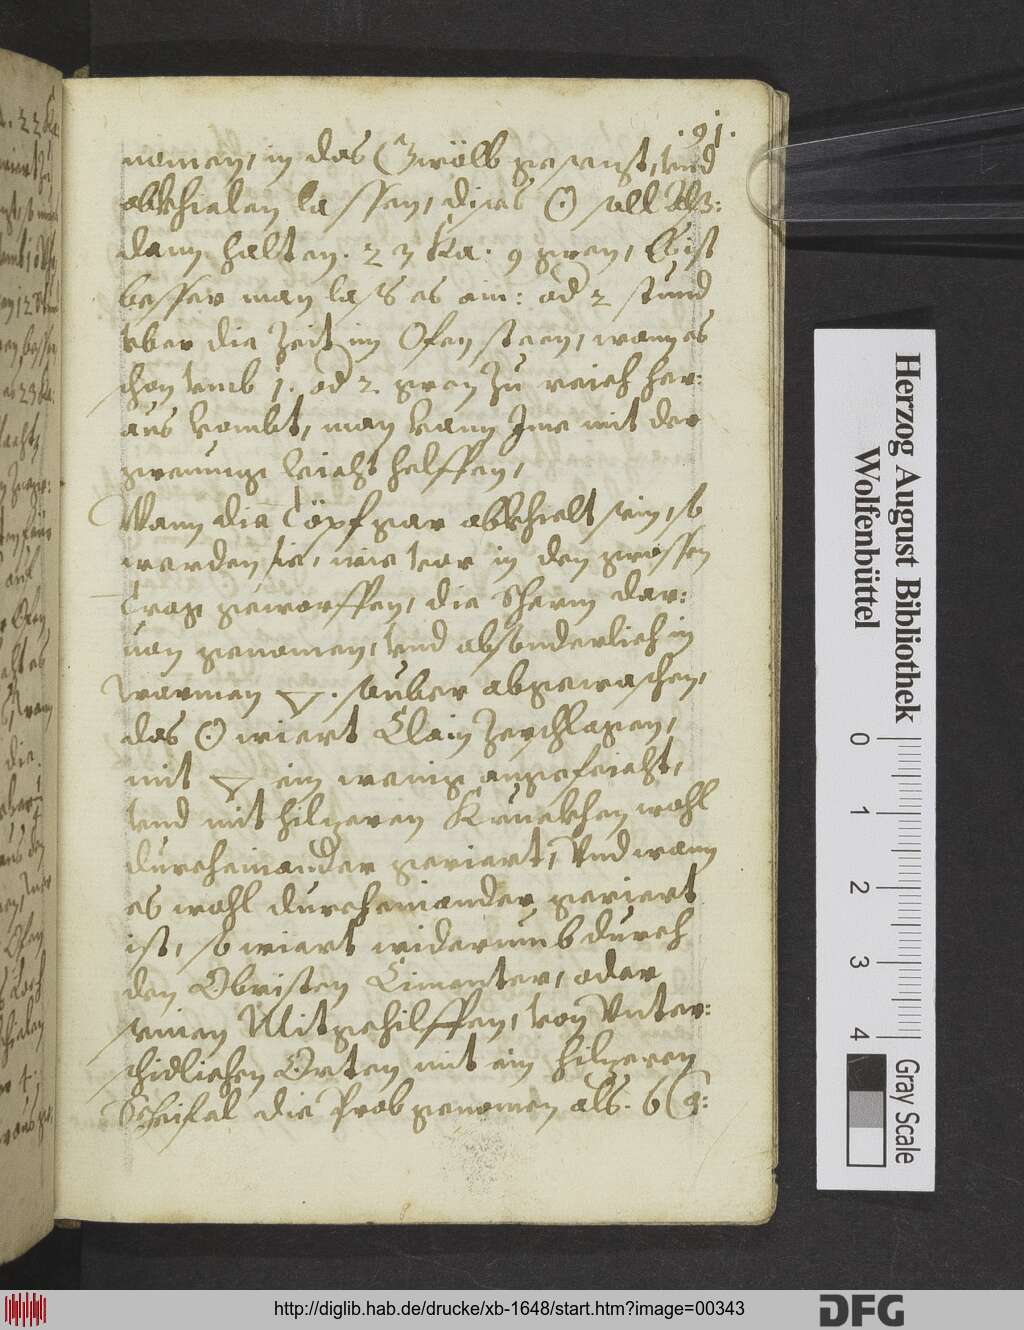 .91.
nomen, in das Gwölb gesezt, vnd
abkhielen lassen, dises ☉ soll Alß:
dann halten. 23 Ka: 9 gren, Es ist
besser man laß es ain: od 2 stund
vber die Zeit im Ofen steen, wann es
schon vmb 1. od 2. gren Zu reich her:
aus kombt, man kann Ime mit der
grenunge leicht helffen,
Wann die Töpf gar abkhielt sein, so
werden sie, wie vor in den grossen
Trog geworffen, die Scherm dar:
uon genomen, vnd absonderlich in
warmen ▽. sauber abgewaschen,
das ☉ wiert Clain Zerschlagen,
mit ▽ ein wenig angefeicht,
vnd mit hilzeren Kruckhen wohl
durcheinander geriert, Vnd wann
es wohl durcheinander geriert
ist, so wiert widerumb durch
den Obristen Cimenter, oder
seinen Mitgehilffen, von Vnter:
schidlichen Orten mit ein hilzeren
Scheifal die Prob genomen als. 6
Herzog August Bibliothek
Wolfenbüttel
0 1 2 3 4
Gray Scale
http://diglib.hab.de/drucke/xb-1648/start.htm?image=00343
DFG